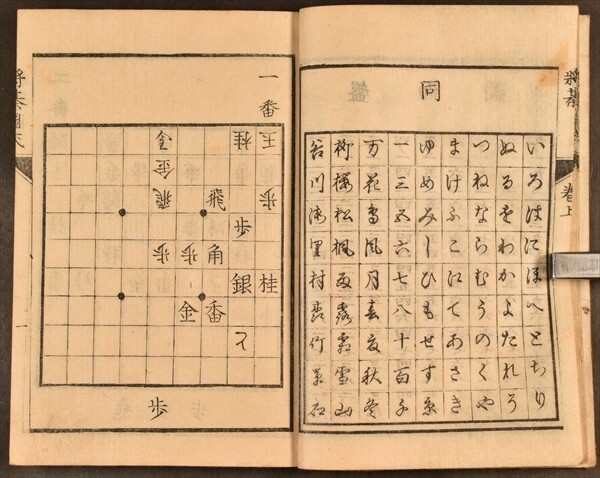 将棊
巻上
同
いろはにほへとちり
ぬるをわかよたれそ
つねならむうのくや
まけふこえてあさき
ゆめみしひもせす京
一三五六七八十百千
万花鳥風月春夏秋冬
柳桜松楓雨露霜雪山
谷川海里村竹草石
一番
金桂玉
金
飛飛歩
歩
歩歩角
銀桂
金香
歩
将棊図式
一